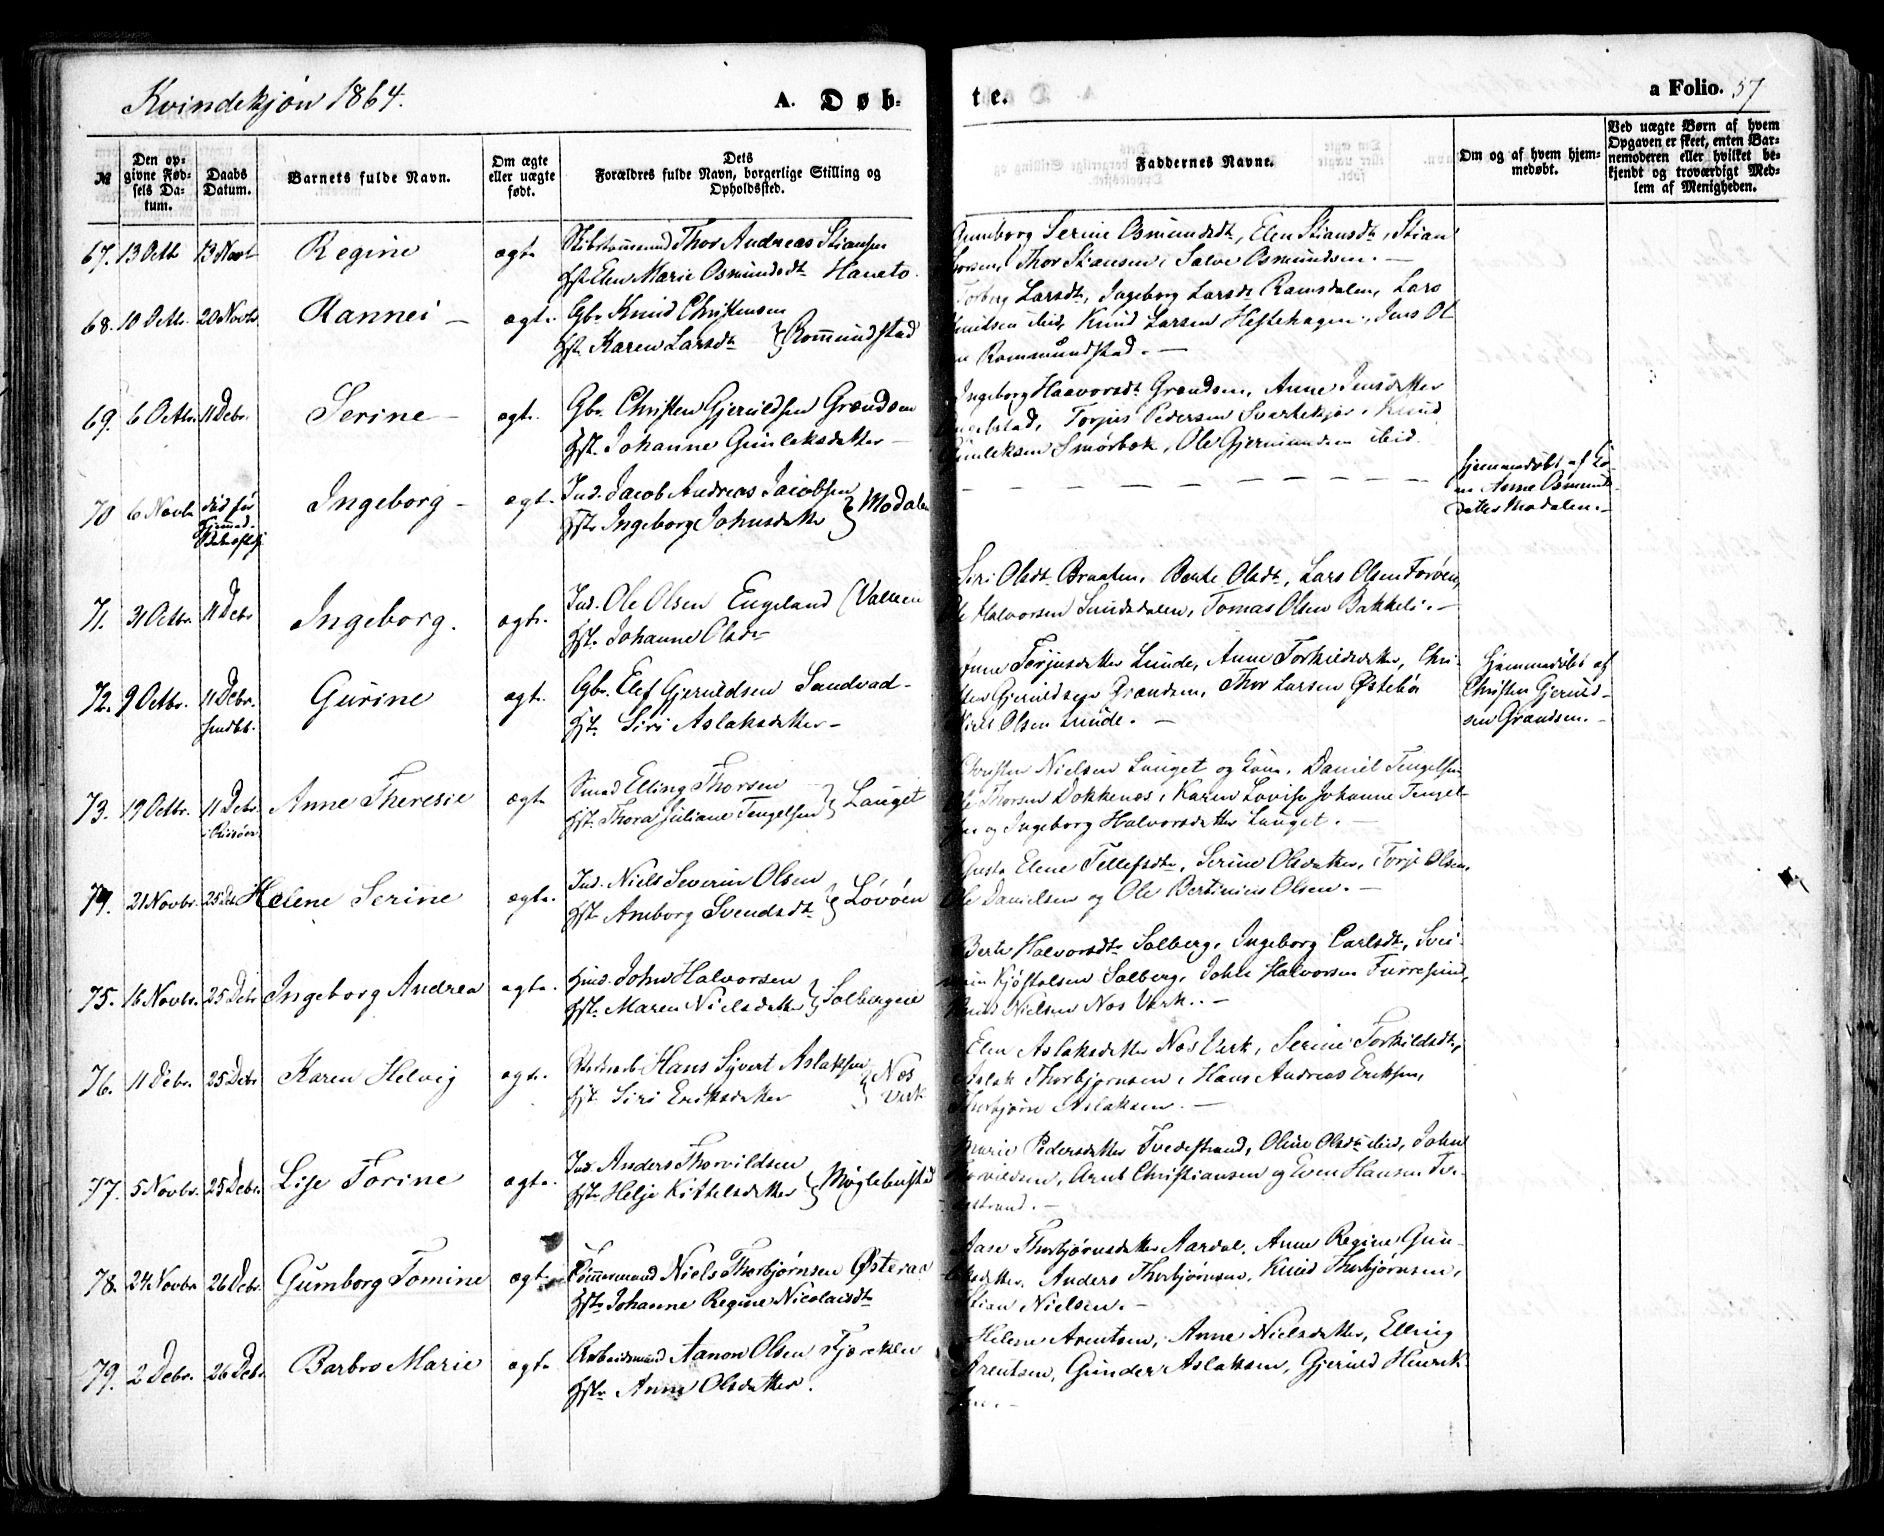 Kvindekjön 1864.
A. Døb-
te.
a Folio. 57
№
Den op-
givne Fød-
sels Da-
tum.
Daabs
Datum.
Barnets fulde Navn.
Om ægte
eller uægte
født.
Dets
Forældres fulde Navn, borgerlige Stilling og
Opholdssted.
Faddernes Navne.
Om og af hvem hjem-
medøbt.
Ved uægte Børn af hvem
Opgaven er skeet, enten Bar-
nemoderen eller hvilket be-
kjendt og troværdigt Med-
lem af Menigheden.
67. 13 Octb 13 Novb Regine ægt. Thor Andreas Stiansen
Hst. Elen Marie Osmundsdt Haneto.
Gunborg Serine Osmundsdt, Elen Stiansdt, Stian
Thorsen, Thor Stiansen, Salve Osmundsen. —
68. 10 Octb. 20 Novb. Rannei — ægt. Gbr. Knud Christensen
Hst. Karen Larsdt } Rommundstad
Torberg Larsdt, Ingeborg Larsdt Ramsdalen, Lars
Knudsen ibid, Knud Larsen Heftehagen, Jens Ol
sen Rommundstad. —
69. 6 Octbr. 11 Debr. Serine — ægt. Gbr. Christen Gjeruldsen Grændsen
Hst. Johanne Gunleksdatter —
Ingeborg Haavorsdt Grændsen, Anne Jensdatter
Torjus Pedersen Svartekjær, Knud
Gunleksen Smørbæk, Ole Gjermundsen ibid.
70 6 Novbr død før
Ingeborg — ægt. Ind. Jacob Andreas Jacobsen
Hst. Ingeborg Johnsdatter } Modalen
— — — — — — — — —
Hjemmedøbt af Ko-
ne Anne Osmunds-
datter Modalen. —
71. 31 Octbr. 11 Debr Ingeborg. ægt. Ind. Ole Olsen Engeland (Valmen
Hst. Johanne Olsdt
Siri Olsdt Braaten, Berte Olsdt, Lars Olsen Torøen,
Ole Halvorsen Sundsdalen, Tomas Olsen Bakkeli. —
72. 9 Octbr. 11 Debr.
Gurine ægt. Gbr. Elef Gjeruldsen Sandvad —
Hst. Siri Aslaksdatter —
Anne Torjusdatter Lunde, Anne Torkildsdatter, Chri-
sten Gjeruldsen Grændsen, Thor Larsen Østebø
Niels Olsen Lunde. —
Hjemmedøbt af
Christen Gjeruld-
sen Grændsen. —
73. 19 Octbr. 11 Debr
i Risøer
Anne Theresie ægt. Smed Elling Thorsen
Hst. Thora Juliane Tengelsen } Lauget
Christen Nielsen Lauget og Kone, Daniel Tengelsen
Ole Thorsen Dokkenæs, Karen Lovise Johanne Tengel-
sen og Ingeborg Halvorsdatter Lauget. —
74. 21 Novbr. 25 Deb Helene Serine ægt. Ind. Niels Severin Olsen
Hst. Amborg Svendsdt } Løvøen
Gusta Elene Tellefsdt, Serine Olsdatter, Torje Olsen,
Ole Danielsen og Ole Bertinius Olsen. —
75. 16 Novbr. 25 Debr Ingeborg Andrea ægt. Hmd. John Halvorsen
Hst. Maren Nielsdatter } Solbergeie
Berte Halvorsdt Solberg, Ingeborg Carlsdt, Svei-
nun Kjøstolsen Solberg, John Halvorsen Furresund,
Knud Nielsen Næs Værk. . —
76. 11 Debr. 25 Debr Karen Helvig ægt. Hans Syvert Aslaksen
Hst. Siri Eriksdatter } Næs
Værk
Elen Aslaksdatter Næs Værk, Serine Torkildsdt,
Aslak Thorbjørnsen, Hans Andreas Eriksen,
Thorbjørn Aslaksen. —
77. 5 Novbr. 25 Debr. Lise Torine ægt. Ind. Anders Thorvildsen
Hst. Helje Kittelsdatter } Møglebustad
Marie Pedersdatter Tvedestrand, Oline Olsdt ibid, John
Thorvildsen, Arnt Christiansen og Even Hansen Tve-
destrand. —
78. 24 Novbr 26 Debr. Gumborg Tomine ægt. Tømmermand Niels Thorbjørnsen Østeraa
Hst. Johanne Regine Nicolaisdt
Aase Thorbjørnsdatter Aardal, Anne Regine Gun-
leksdatter, Anders Thorbjørnsen, Knud Thorbjørnsen,
Stian Nielsen. —
79. 2 Debr. 26 Debr Barbro Marie ægt. Arbeidsmand Aanon Olsen Fjæreklev
Hst. Anne Olsdatter.
Helene Arentsen, Anne Nielsdatter, Elling
Arentsen, Gunder Aslaksen, Gjeruld Hinrik-
sen. —